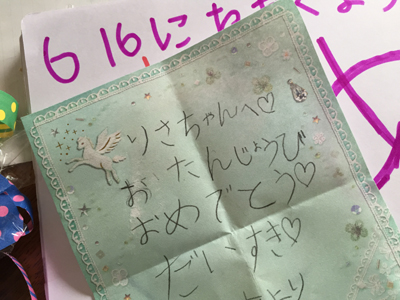 616にち
りさちゃんへ♡
おたんじょうび
おめでとう♡
だいすき♡
より